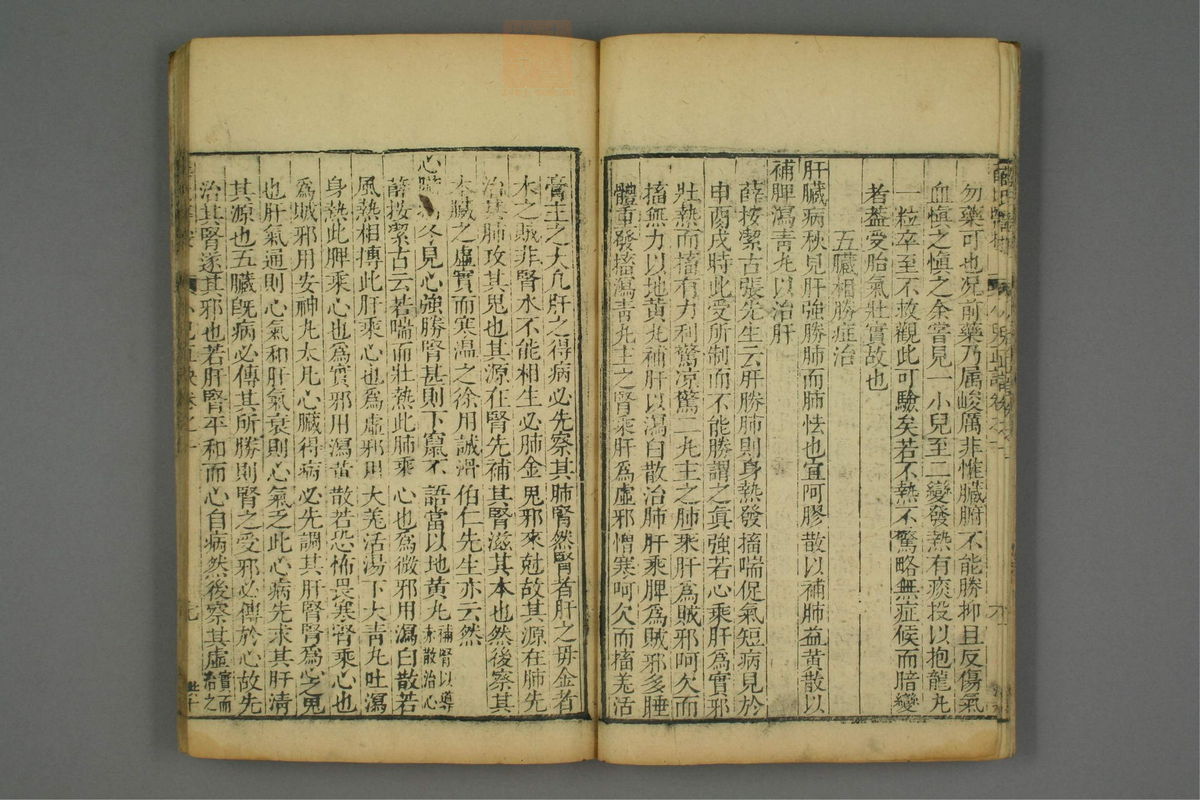 勿藥可也况前藥乃属峻厲非惟臟腑不能勝抑且反傷氣
血慎之慎之余嘗見一小兒至二變發熱有痰投以抱龍丸
一粒卒至不救觀此可驗矣若不熱不驚略無症候而暗變
者葢受胎氣壯實故也
五臟相勝症治
肝臟病秋見肝強勝肺而肺怯也宜阿膠散以補肺益黃散以
補脾瀉青丸以治肝
薛按潔古張先生云肝勝肺則身熱發搐喘促氣短病見於
申酉戌時此受所制而不能勝謂之真強若心乘肝爲實邪
壯熱而搐有力利驚凉驚二丸主之肺乘肝爲賊邪呵欠而
搐無力以地黃丸補肝以瀉白散治肺肝乘脾爲賊邪多睡
體重發搐瀉青丸主之腎乘肝爲虛邪憎寒呵欠而搐羌活
膏主之大凡肝之得病必先察其肺腎然腎者肝之母金者
木之賊非腎水不能相生必肺金鬼邪來尅故其源在肺先
治其肺攻其鬼也其源在腎先補其腎滋其本也然後察其
本臟之虛實而寒温之徐用誠滑伯仁先生亦云然
心臟病冬見心強勝腎甚則下竄不語當以地黃丸補腎以導赤散治心
薛按潔古云若喘而壯熱此肺乘心也爲微邪用瀉白散若
風熱相搏此肝乘心也爲虛邪用大羌活湯下大青丸吐瀉
身熱此脾乘心也爲實邪用瀉黃散若恐怖畏寒腎乘心也
爲賊邪用安神丸大凡心臟得病必先調其肝腎腎爲心之鬼
也肝氣通則心氣和肝氣衰則心氣乏此心病先求其肝清
其源也五臟旣病必傳其所勝則腎之受邪必傳於心故先
治其腎逐其邪也若肝腎平和而心自病然後察其虛實而治之